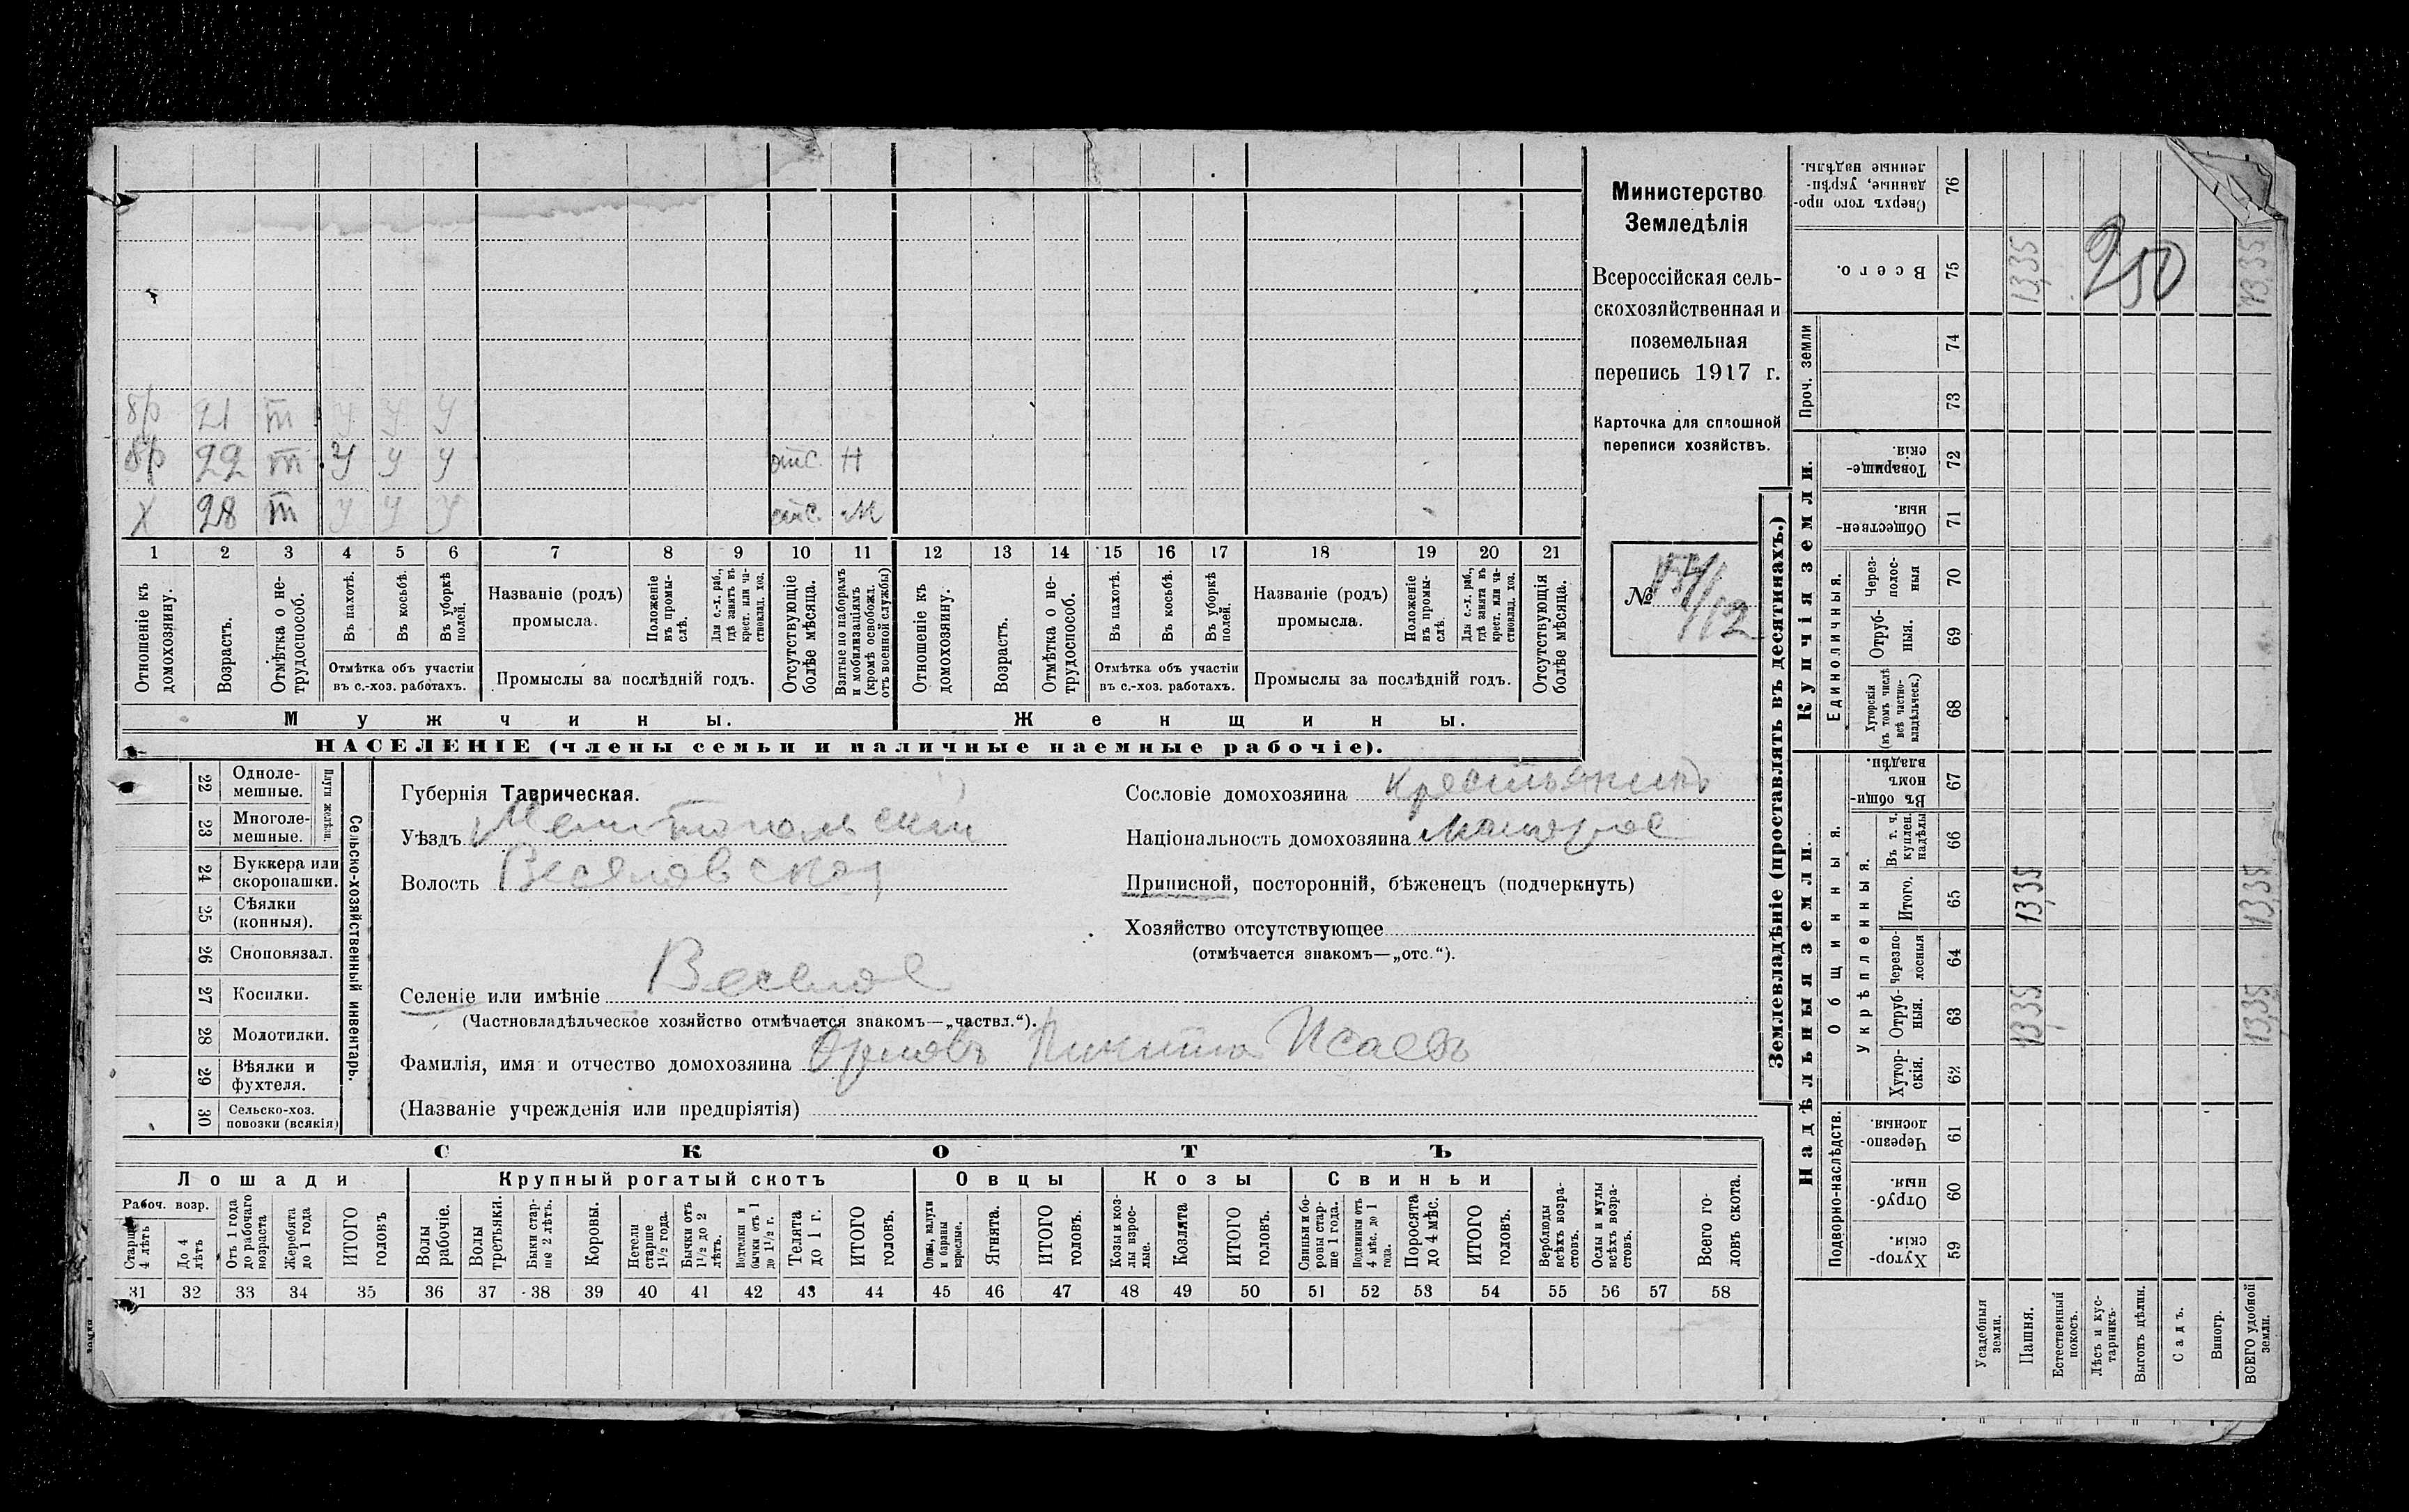 бр 21 т у у у
бр 22 т у у у отс. Н
Х 28 т у у у отс. М
1 2 3 4 5 6 7 8 9 10 11 12 13 14 15 16 17 18 19 20 21
Отношеніе къ домохозяину.
Возрастъ.
Отмѣтка о нетрудоспособ.
Въ пахотѣ.
Въ косьбѣ.
Въ уборкѣ полей.
Отмѣтка объ участіи
въ с.-хоз. работахъ.
Названіе (родъ)
промысла.
Положеніе въ промыслѣ.
Для с.-х. раб., гдѣ занятъ въ крест. или частновлад. хоз.
Промыслы за послѣдній годъ.
Отсутствующіе болѣе мѣсяца.
Взятые по наборамъ и мобилизаціямъ (кромѣ освобожл. отъ военной службы)
Отношеніе къ домохозяину.
Возрастъ.
Отмѣтка о нетрудоспособ.
Въ пахотѣ.
Въ косьбѣ.
Въ уборкѣ полей.
Отмѣтка объ участіи
въ с.-хоз. работахъ.
Названіе (родъ)
промысла.
Положеніе въ промыслѣ.
Для с.-х. раб., гдѣ занята въ крест. или частновлад. хоз.
Промыслы за послѣдній годъ.
Отсутствующія болѣе мѣсяца.
Мужчины. Женщины.
НАСЕЛЕНІЕ (члены семьи и наличные наемные рабочіе).
Министерство
Земледѣлія
Всероссійская сель-
скохозяйственная и
поземельная
перепись 1917 г.
Карточка для сплошной
переписи хозяйствъ.
№
22 Одноле-
мешные.
23 Многоле-
мешные.
Плуги желѣзн.
24 Буккера или
скоропашки.
25 Сѣялки
(конныя).
26 Сноповязал.
27 Косилки.
28 Молотилки.
29 Вѣялки и
фухтеля.
30 Сельско-хоз.
повозки (всякія)
Сельско-хозяйственный инвентарь.
Губернія Таврическая.
Уѣздъ Мелитопольскій
Волость Веселовская
Сословіе домохозяина крестьянинъ
Національность домохозяина малорос
Приписной, посторонній, бѣженецъ (подчеркнуть)
Хозяйство отсутствующее
(отмѣчается знакомъ—„отс.“).
Селеніе или имѣніе Веселое
(Частновладѣльческое хозяйство отмѣчается знакомъ—„частвл.“).
Фамилія, имя и отчество домохозяина Орловъ Никита Исаевъ
(Названіе учрежденія или предпріятія)
СКОТЪ
Лошади Крупный рогатый скотъ Овцы Козы Свиньи
Рабоч. возр.
Старше 4 лѣтъ
До 4 лѣтъ
Отъ 1 года до рабочаго возраста
Жеребята до 1 года
ИТОГО головъ
Волы рабочіе.
Волы третьяки.
Быки старше 2 лѣтъ.
Коровы.
Нетели старше 1 1/2 года.
Бычки отъ 1 1/2 до 2 лѣтъ.
Подтелки и бычки отъ 1 до 1 1/2 г.
Телята до 1 г.
ИТОГО головъ.
Овцы, валухи и бараны взрослые.
Ягнята.
ИТОГО головъ.
Козы и козлы взрослые.
Козлята
ИТОГО головъ.
Свиньи и боровы старше 1 года.
Подсвинки отъ 4 мѣс. до 1 года.
Поросята до 4 мѣс.
ИТОГО головъ.
Верблюды всѣхъ возрастовъ.
Ослы и мулы всѣхъ возрастовъ.
Всего головъ скота.
31 32 33 34 35 36 37 38 39 40 41 42 43 44 45 46 47 48 49 50 51 52 53 54 55 56 57 58
Землевладѣніе (проставлять въ десятинахъ.)
Сверхъ того проданные, укрѣпленные надѣлы. 76
Всего. 75 13,35 250 13,35
Проч. земли 74
73
Купчія земли.
Товарищескія. 72
Общественныя. 71
Единоличныя.
Через-полосныя 70
Отрубныя. 69
Хуторскія (въ томъ числѣ всѣ частновладѣльческ.) 68
Надѣльныя земли.
Общинныя.
Въ общинномъ владѣн. 67
Укрѣпленныя.
Въ т. ч. куплен. надѣлы 66
Итого. 65 13,35 13,35
Черезполосныя 64
Отрубныя. 63 13,35 13,35
Хуторскія. 62
Подворно-наслѣдств.
Черезполосныя. 61
Отрубныя. 60
Хуторскія. 59
Усадебныя земли.
Пашня.
Естественный покосъ.
Лѣсъ и кустарникъ.
Выгонъ цѣлин.
Садъ.
Виногр.
ВСЕГО удобной земли.